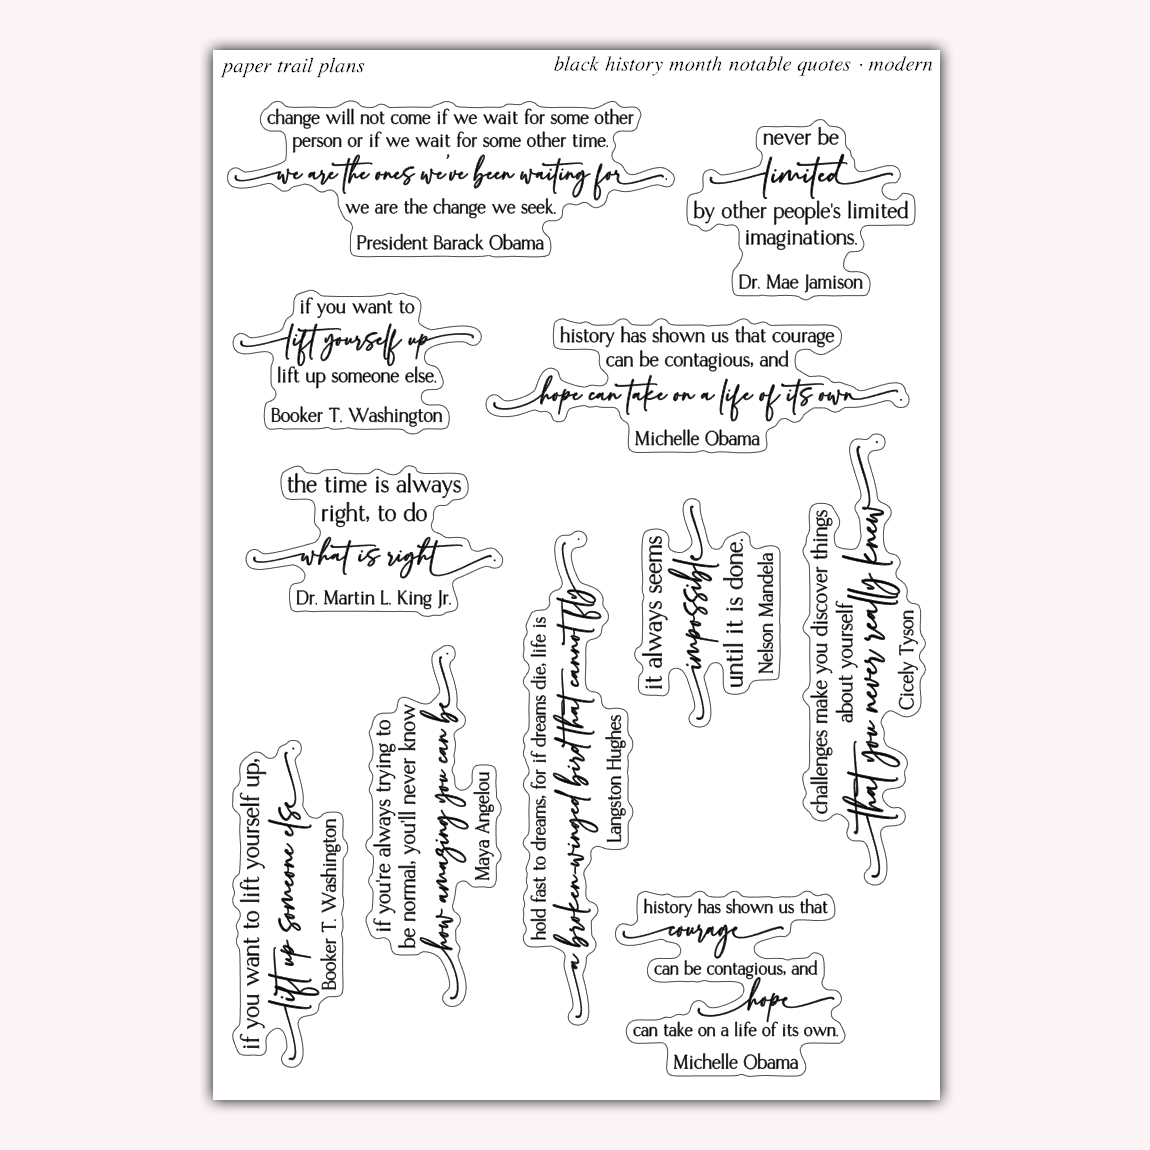 paper trail plans
black history month notable quotes · modern
change will not come if we wait for some other
person or if we wait for some other time.
we are the ones we've been waiting for.
we are the change we seek.
President Barack Obama
never be
limited
by other people's limited
imaginations.
Dr. Mae Jamison
if you want to
lift yourself up
lift up someone else.
Booker T. Washington
history has shown us that courage
can be contagious, and
hope can take on a life of its own.
Michelle Obama
the time is always
right, to do
what is right.
Dr. Martin L. King Jr.
it always seems
impossible
until it is done.
Nelson Mandela
challenges make you discover things
about yourself
that you never really knew.
Cicely Tyson
hold fast to dreams, for if dreams die, life is
a broken-winged bird that cannot fly.
Langston Hughes
if you're always trying to
be normal, you'll never know
how amazing you can be.
Maya Angelou
if you want to lift yourself up,
lift up someone else.
Booker T. Washington
history has shown us that
courage
can be contagious, and
hope
can take on a life of its own.
Michelle Obama